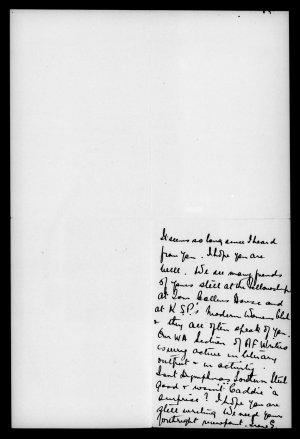 It seems so long since I heard
from you. I hope you are
well. We see many friends
of yours still at the Fellowship
at Tom Collins House and
at K.S.P.'s Modern Women Club
& they all often speak of you.
Our WA Section of
is very active in literary
output & in activity.
Isn't
good & wasn't "Caddie" a
surprise? I hope you are
still writing. We need your
forthright viewpoint.